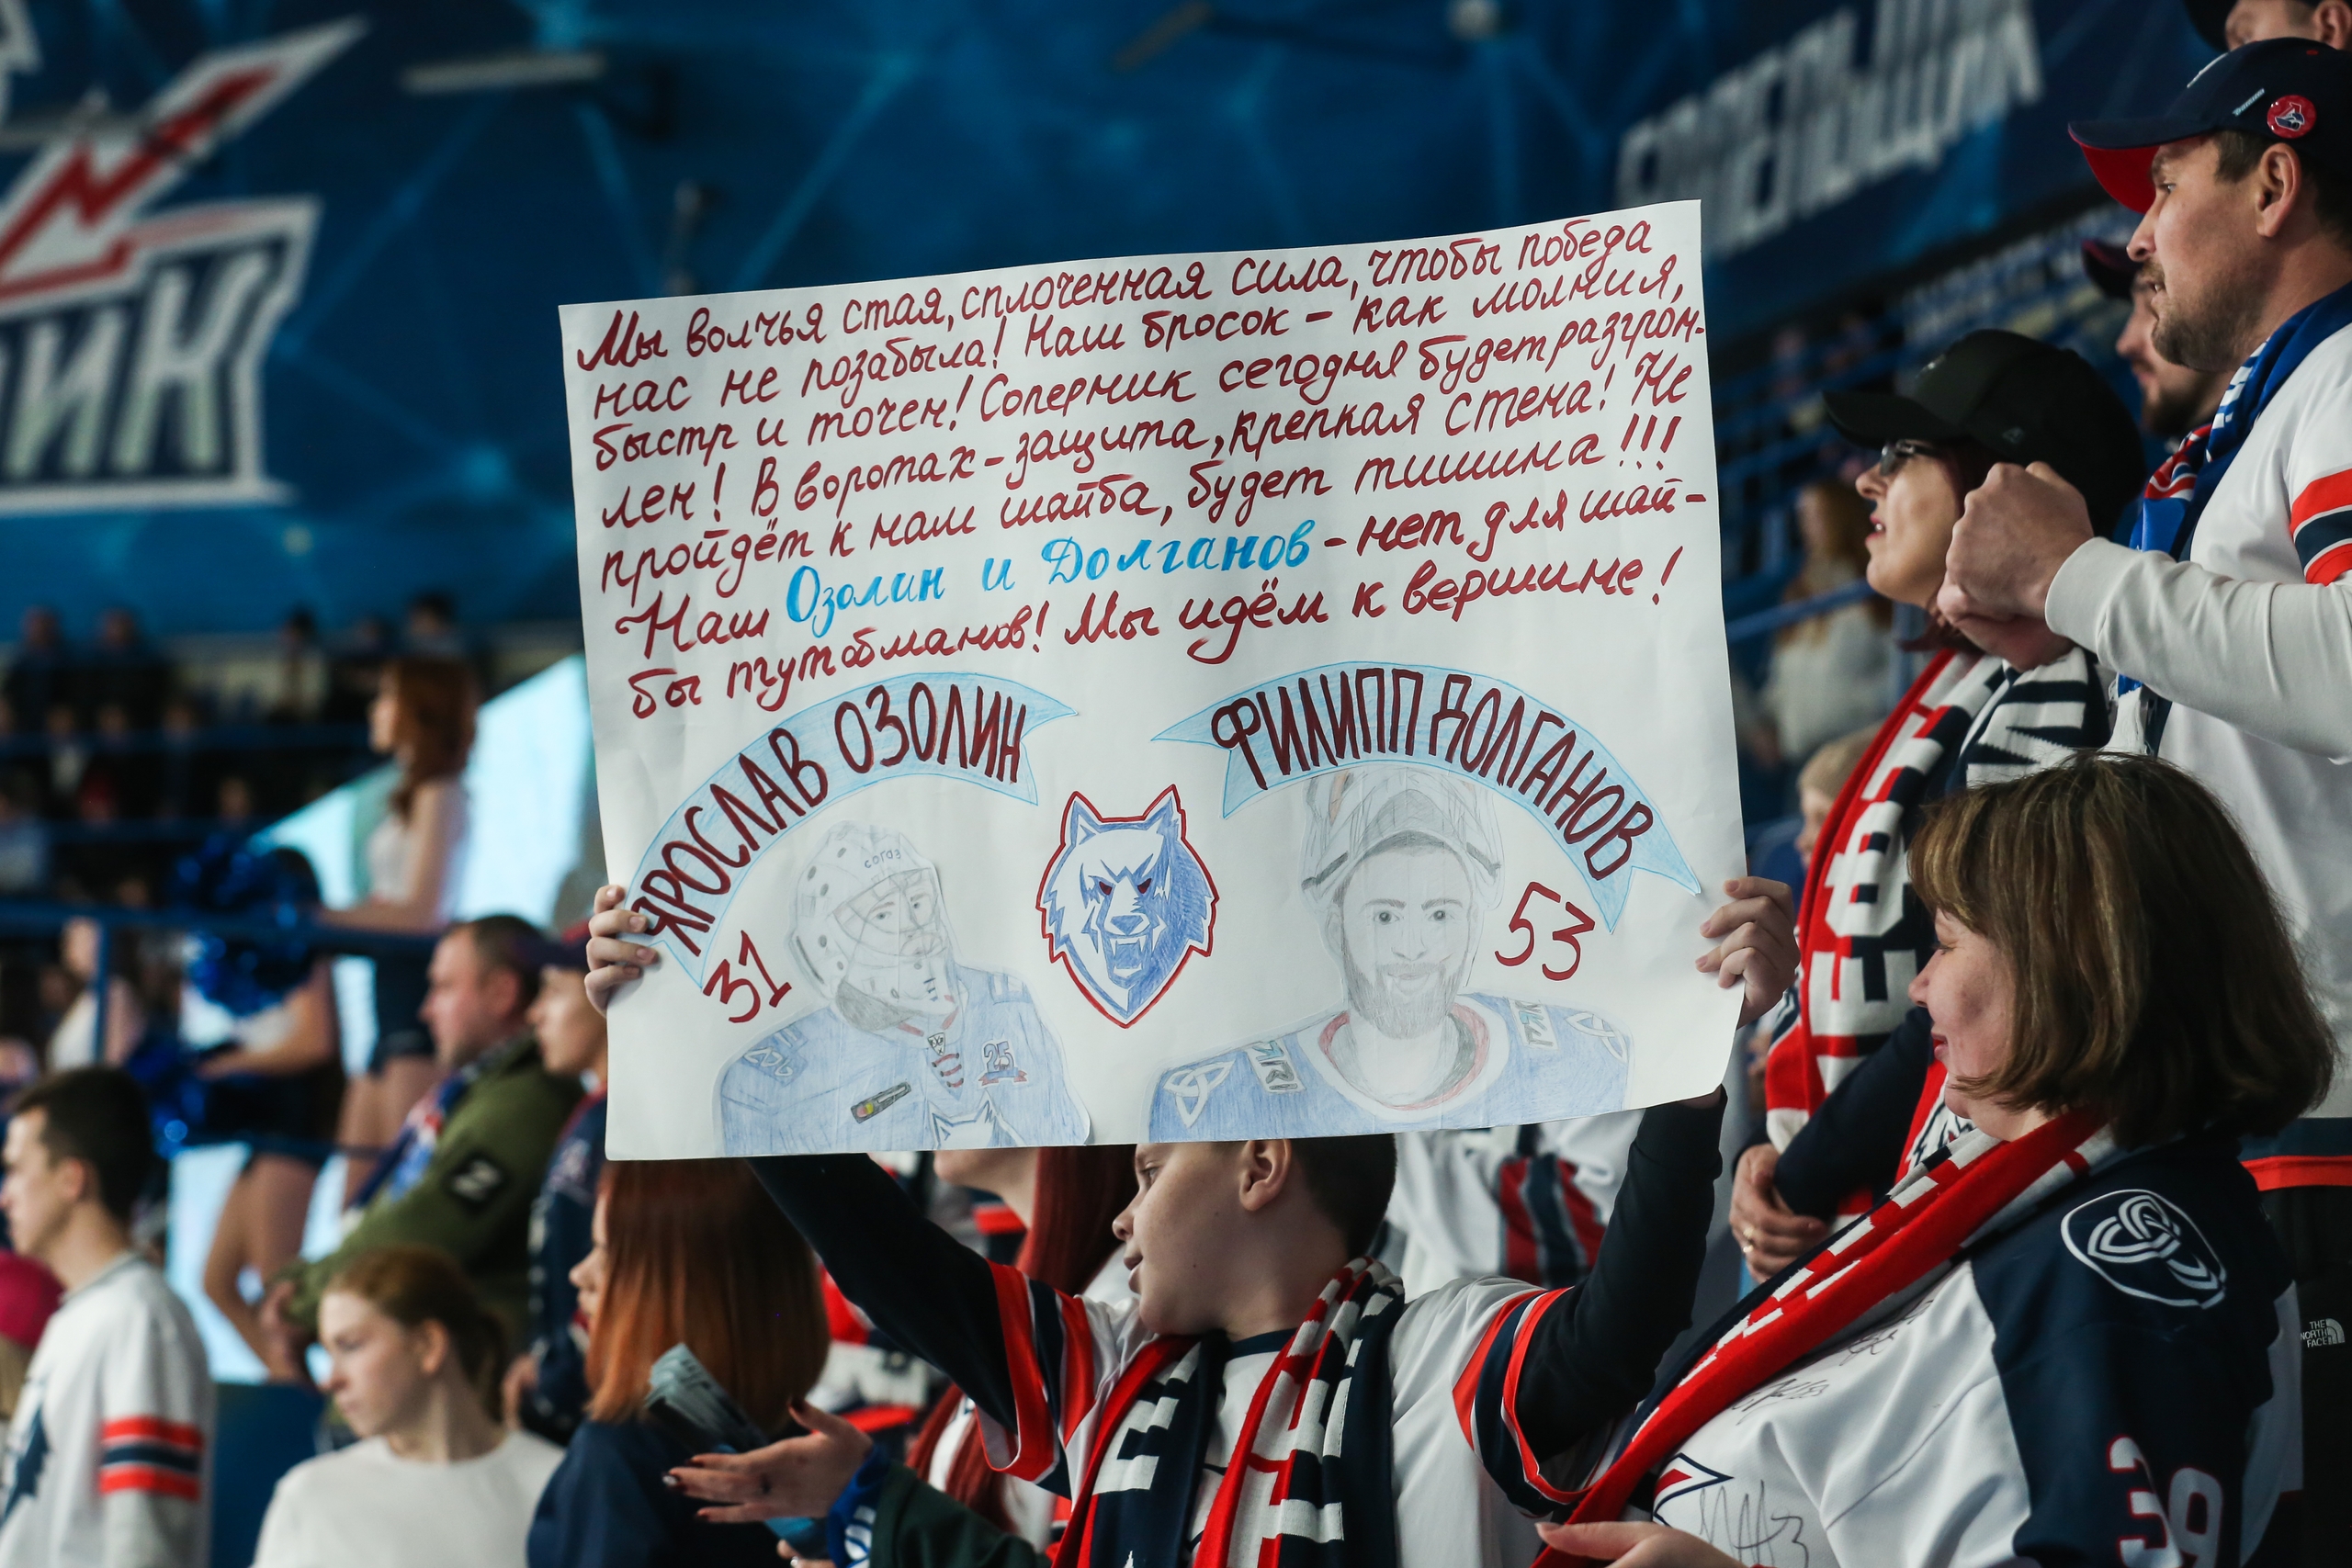 Мы волчья стая, сплоченная сила, чтобы победа
нас не позабыла! Наш бросок - как молния,
быстр и точен! Соперник сегодня будет разгром-
лен! В воротах - защита, крепкая стена! Не
пройдём к нам шайба, будет тишина!!!
Наш Озолин и Долганов - нет для шай-
бы тут обманов! Мы идём к вершине!
ЯРОСЛАВ ОЗОЛИН
ФИЛИПП ДОЛГАНОВ
31
53
согаз
25
39
THE
NORTH
FACE
Z